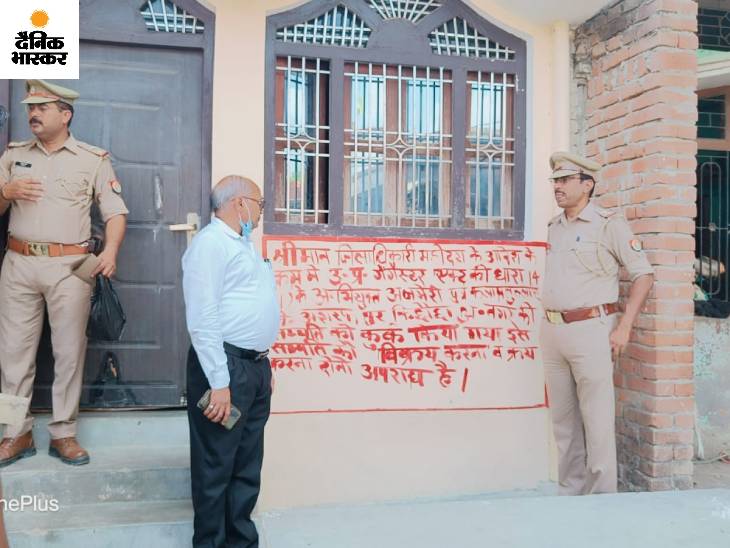 दैनिक
भास्कर
श्रीमान जिलाधिकारी महोदय के आदेश के
क्रम में उ०प्र० गैंगेस्टर एक्ट की धारा 14
के अभियुक्त पुत्र
पुर की
सम्पत्ति को कुर्क किया गया इस
सम्पत्ति को विक्रय करना व क्रय
करना दोनों अपराध है।
nePlus